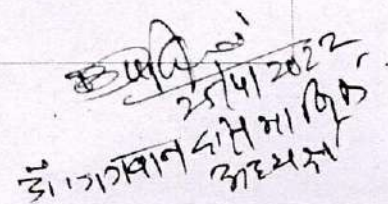 25/4/2022
डॉ. भगवान दास मानिक
अध्यक्ष